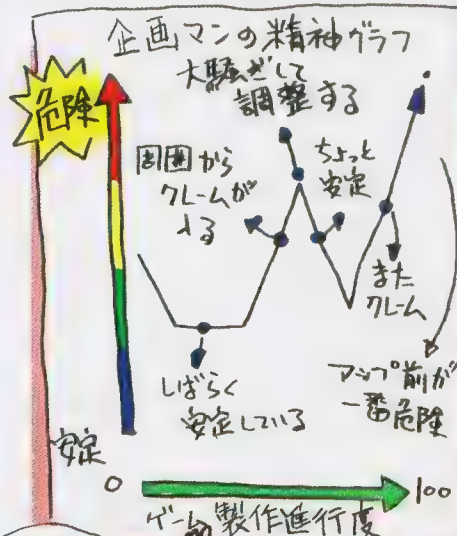 企画マンの精神グラフ
危険
大騒ぎして
調整する
周囲から
クレームが
入る
ちょっと
安定
また
クレーム
しばらく
安定している
アップ前が
一番危険
安定
0
100
ゲームの製作進行度